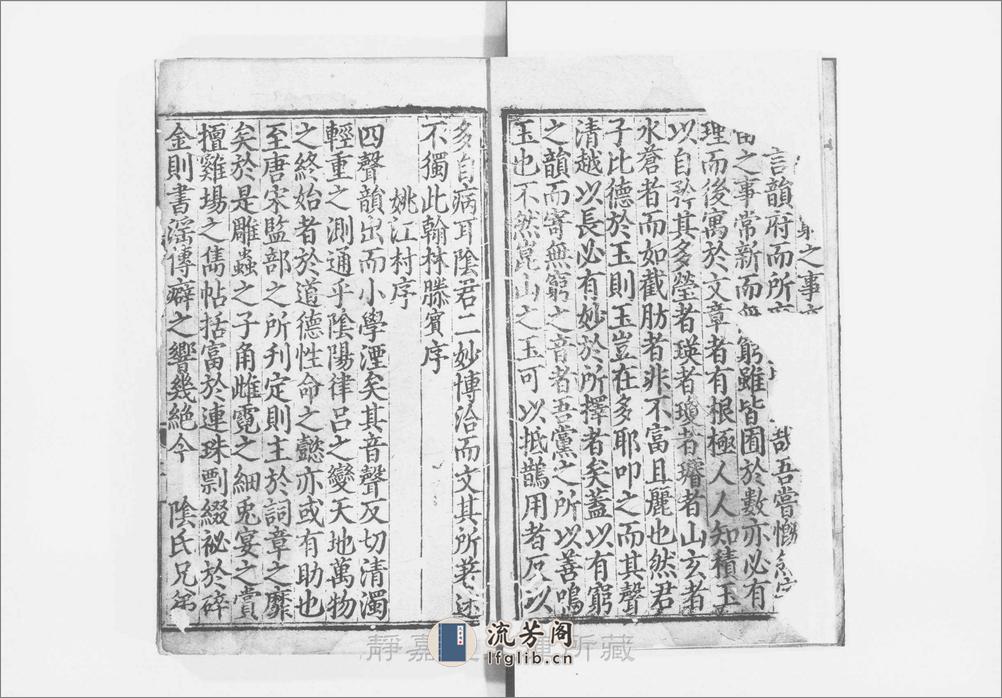 之事
言韻府而所
哉吾嘗
之事常新而
窮雖皆囿於數亦必有
理而後寓於文章者有根極人人知積玉
以自矜其多瑩者瑛者瓊者璿者山玄者
水蒼者而如截肪者非不富且麗也然君
子比德於玉則玉豈在多耶叩之而其聲
清越以長必有妙於所擇者矣蓋以有窮
之韻而寄無窮之音者吾黨之所以善鳴
玉也不然崑山之玉可以抵鵲用者反以
多自病耳陰君二妙博洽而文其所著述
不獨此翰林滕賓序
姚江村序
四聲韻出而小學湮矣其音聲反切清濁
輕重之測通乎陰陽律呂之變天地萬物
之終始者於道德性命之懿亦或有助也
至唐宋監部之所刋定則主於詞章之靡
矣於是雕蟲之子角雌霓之細兎宴之賞
擅雞場之雋帖括富於連珠剽綴祕於碎
金則書滛傳癖之響幾絕今 陰氏兄弟
靜嘉 所藏
流芳阁
lfglib.cn